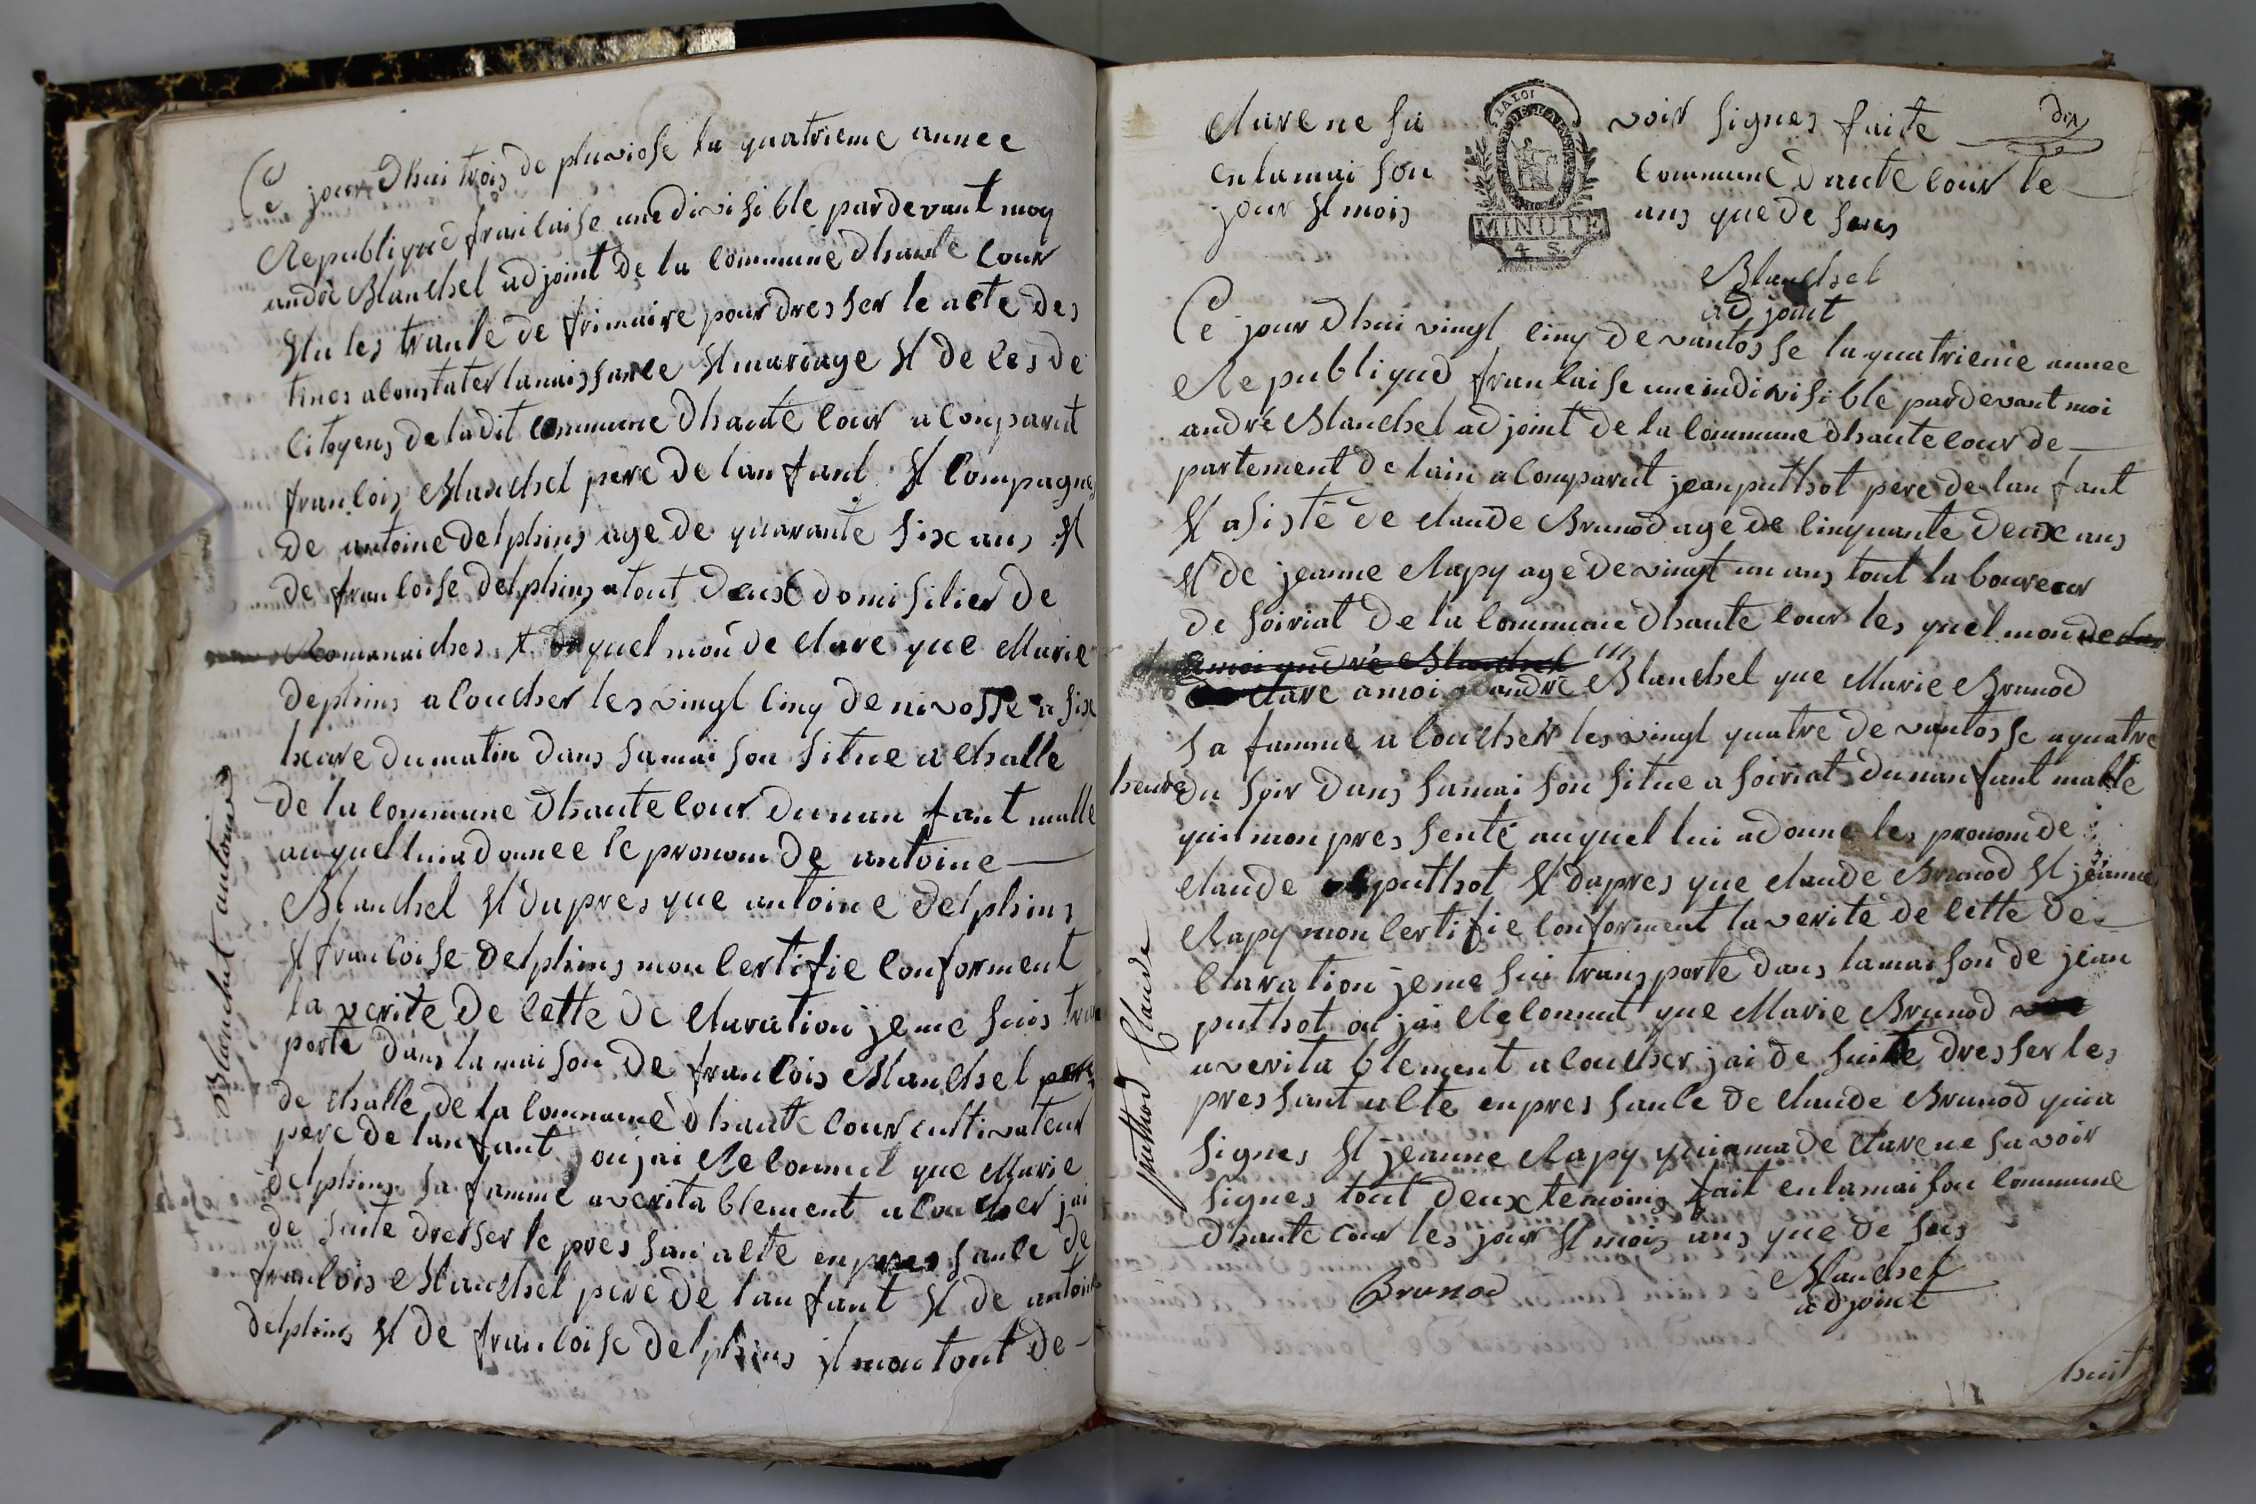 Ce jour Dhui trois de pluviose la quatrieme annee
Republique francaise une divisible pardevant moy
andre Blanchet adjoint de la commune dhaute cour
Elu les trante de frimaire pour dresser le acte des
tines a constater la naissance et mariage et de ces de
citoyens de la dit commune dhaute cour a comparut
francois Blanchet pere de lanfant et compagnes
de antoine delphins age de quarante six ans et
de francoise delphins a tout deux domisilier de
Romanaiches et quel mon de clare que Marie
dephins a coucher les vingt cinq de nivosse a six
heure du matin dans sa mai son situe a challe
de la commune dhaute cour dunan fant malle
auquel lui a donnee le pronom de antoine
Blanchet et dapres que antoine delphins
et francoise delphins mon certifie conforment
la verite de cette de claration je me suis tran
porte dans la maison de francois Blanchet
de challe de la commune dhaute cour cultivateur
pere de lanfant ou jai Reconnut que Marie
delphins sa famme a verita blement a coucher jai
de suite dresser le pres san acte en pres sance de
francois Blanchet pere de lanfant et de antoine
delphins et de francoise delphins il mon tout de
Blanchet antoine
dix
clare ne sa voir signes faite
en la mai son commune dhaute cour le
jour et mois ans que de sus
LA LOI
MINUTE
4 S.
Blanchet
adjoint
Ce jour dhui vingt cinq de vantosse la quatrieme annee
Republique francaise une indivisible pardevant moi
andré Blanchet adjoint de la commune dhaute cour de
partement de lain a comparut jean puthot pere de lanfant
et asisté de claude Brunod age de cinquante deux ans
et de jeanne Rapy age de vingt un ans tout laboureur
de soiriat de la commune dhaute cour les quel mon
clare a moi andre Blanchet que Marie Brunod
sa famme a coucher les vingt quatre de vantosse a quatre
heure du soir dans sa mai son situe a soiriat dunanfant malle
quil mon pres senté auquel lui a donne les pronom de
claude puthot et dapres que claude Brunod et jeanne
Rapy mon certifie conforment la verite de cette de
claration je me sui transporte dans la maison de jean
puthot ou jai Reconnut que Marie Brunod
a verita blement a coucher jai de suite dresser les
pres sant acte en pres sance de claude Brunod qui a
signes et jeanne Rapy qui a ma de clare ne savoir
signes tout deux temoins fait en la maison commune
dhaute cour les jour et mois ans que de sus
puthod Claude
Brunod
Blanchet
adjoint
huit